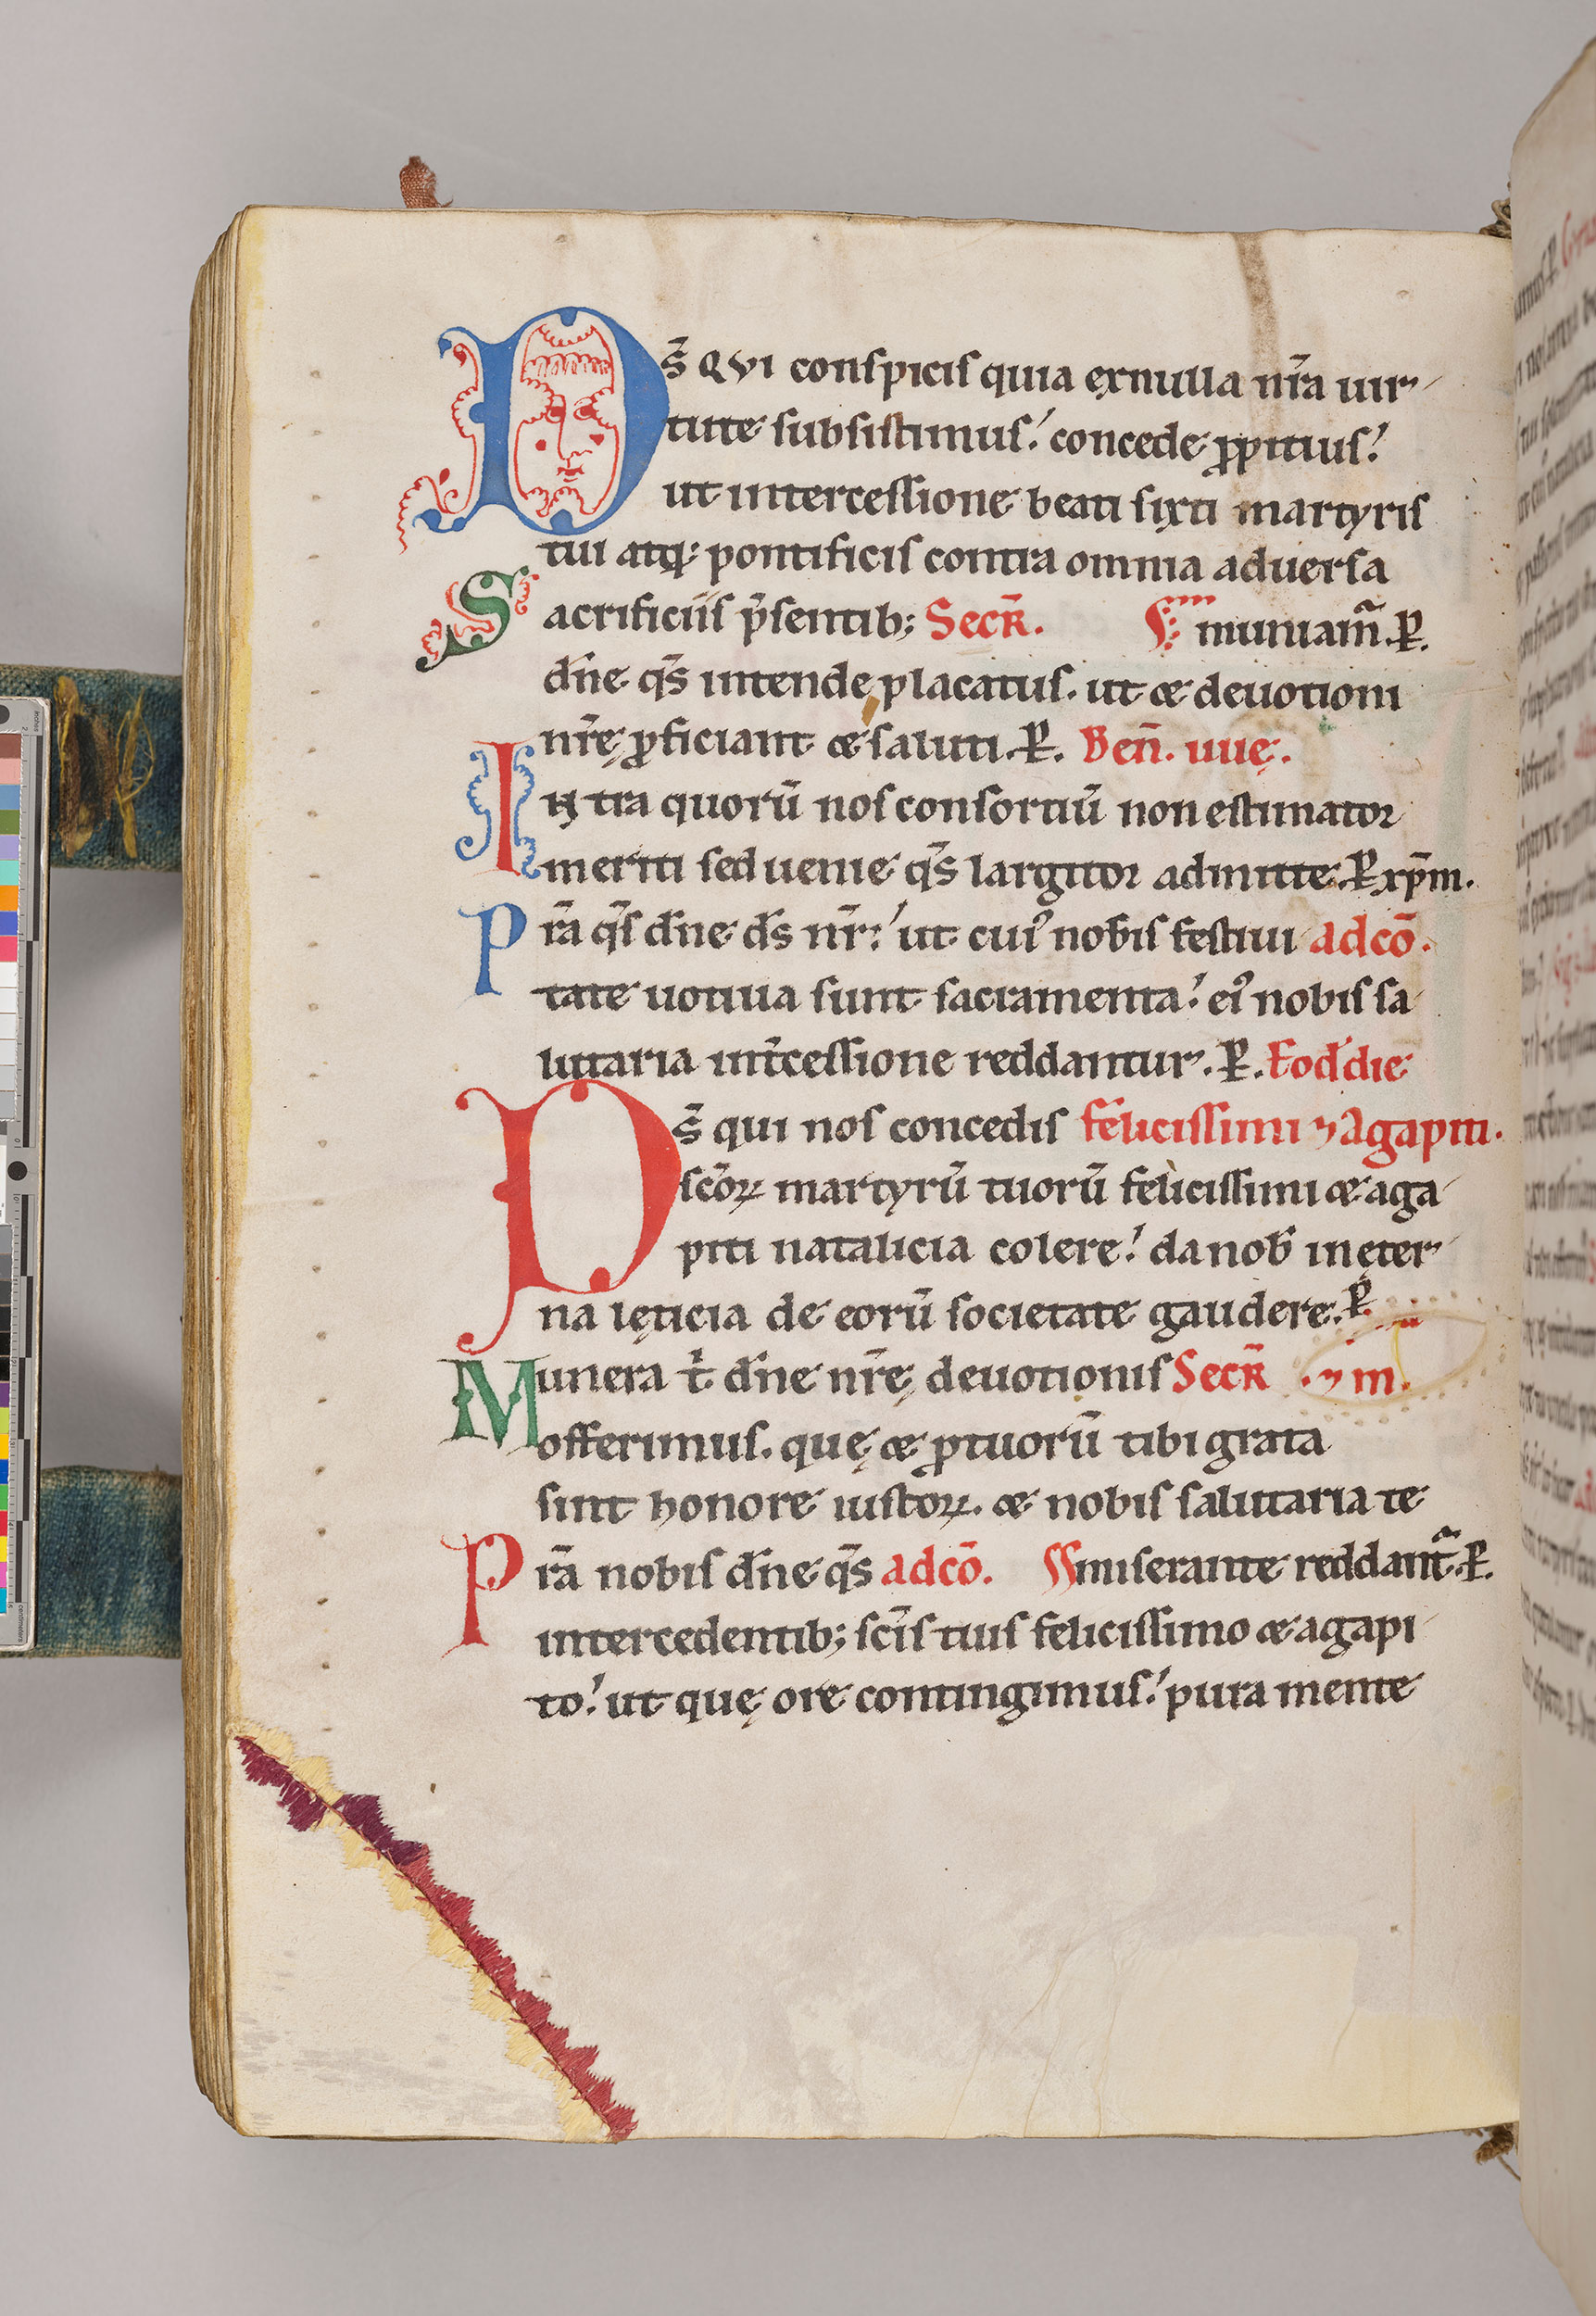 Ds̄ QVI conspicis quia ex nulla nr̄a uir
tute subsistimus! concede ꝓpitius!
ut intercessione beati sixti martyris
tui atq; pontificis contra omnia aduersa
Sacrificiis p̄sentib; Secr̄. muniam̄. P̲.
dn̄e qs̄ intende placatus. ut & deuotioni
nr̄ę ꝓficiant & saluti. P̲. Ben̄. uuę.
Intra quorū nos consortiū non estimator
meriti sed uenie qs̄ largitor admitte. P̲ xp̄m.
Pr̄a qs̄ dn̄e ds̄ nr̄! ut cui᾽ nobis festiui adcō.
tate uotiua sunt sacramenta! ei᾽ nobis sa
lutaria int̄cessione reddantur. P̲. Eod̄ die
Ds̄ qui nos concedis felicissimi ⁊ Agapiti.
scō℞ martyrū tuorū felicissimi & aga
piti natalicia colere! da nob̄ in ęter
na lęticia de eorū societate gaudere. P̲
Munera t̄ dn̄e nr̄ę deuotionis Secr̄ .⁊ m.
offerimus. quę & ꝓ tuorū tibi grata
sint honore iusto℞. & nobis salutaria te
Pr̄a nobis dn̄e qs̄ adcō. miserante reddant̄. P̲.
intercedentib; scīs tuis felicissimo & agapi
to! ut quę ore contingimus! pura mente